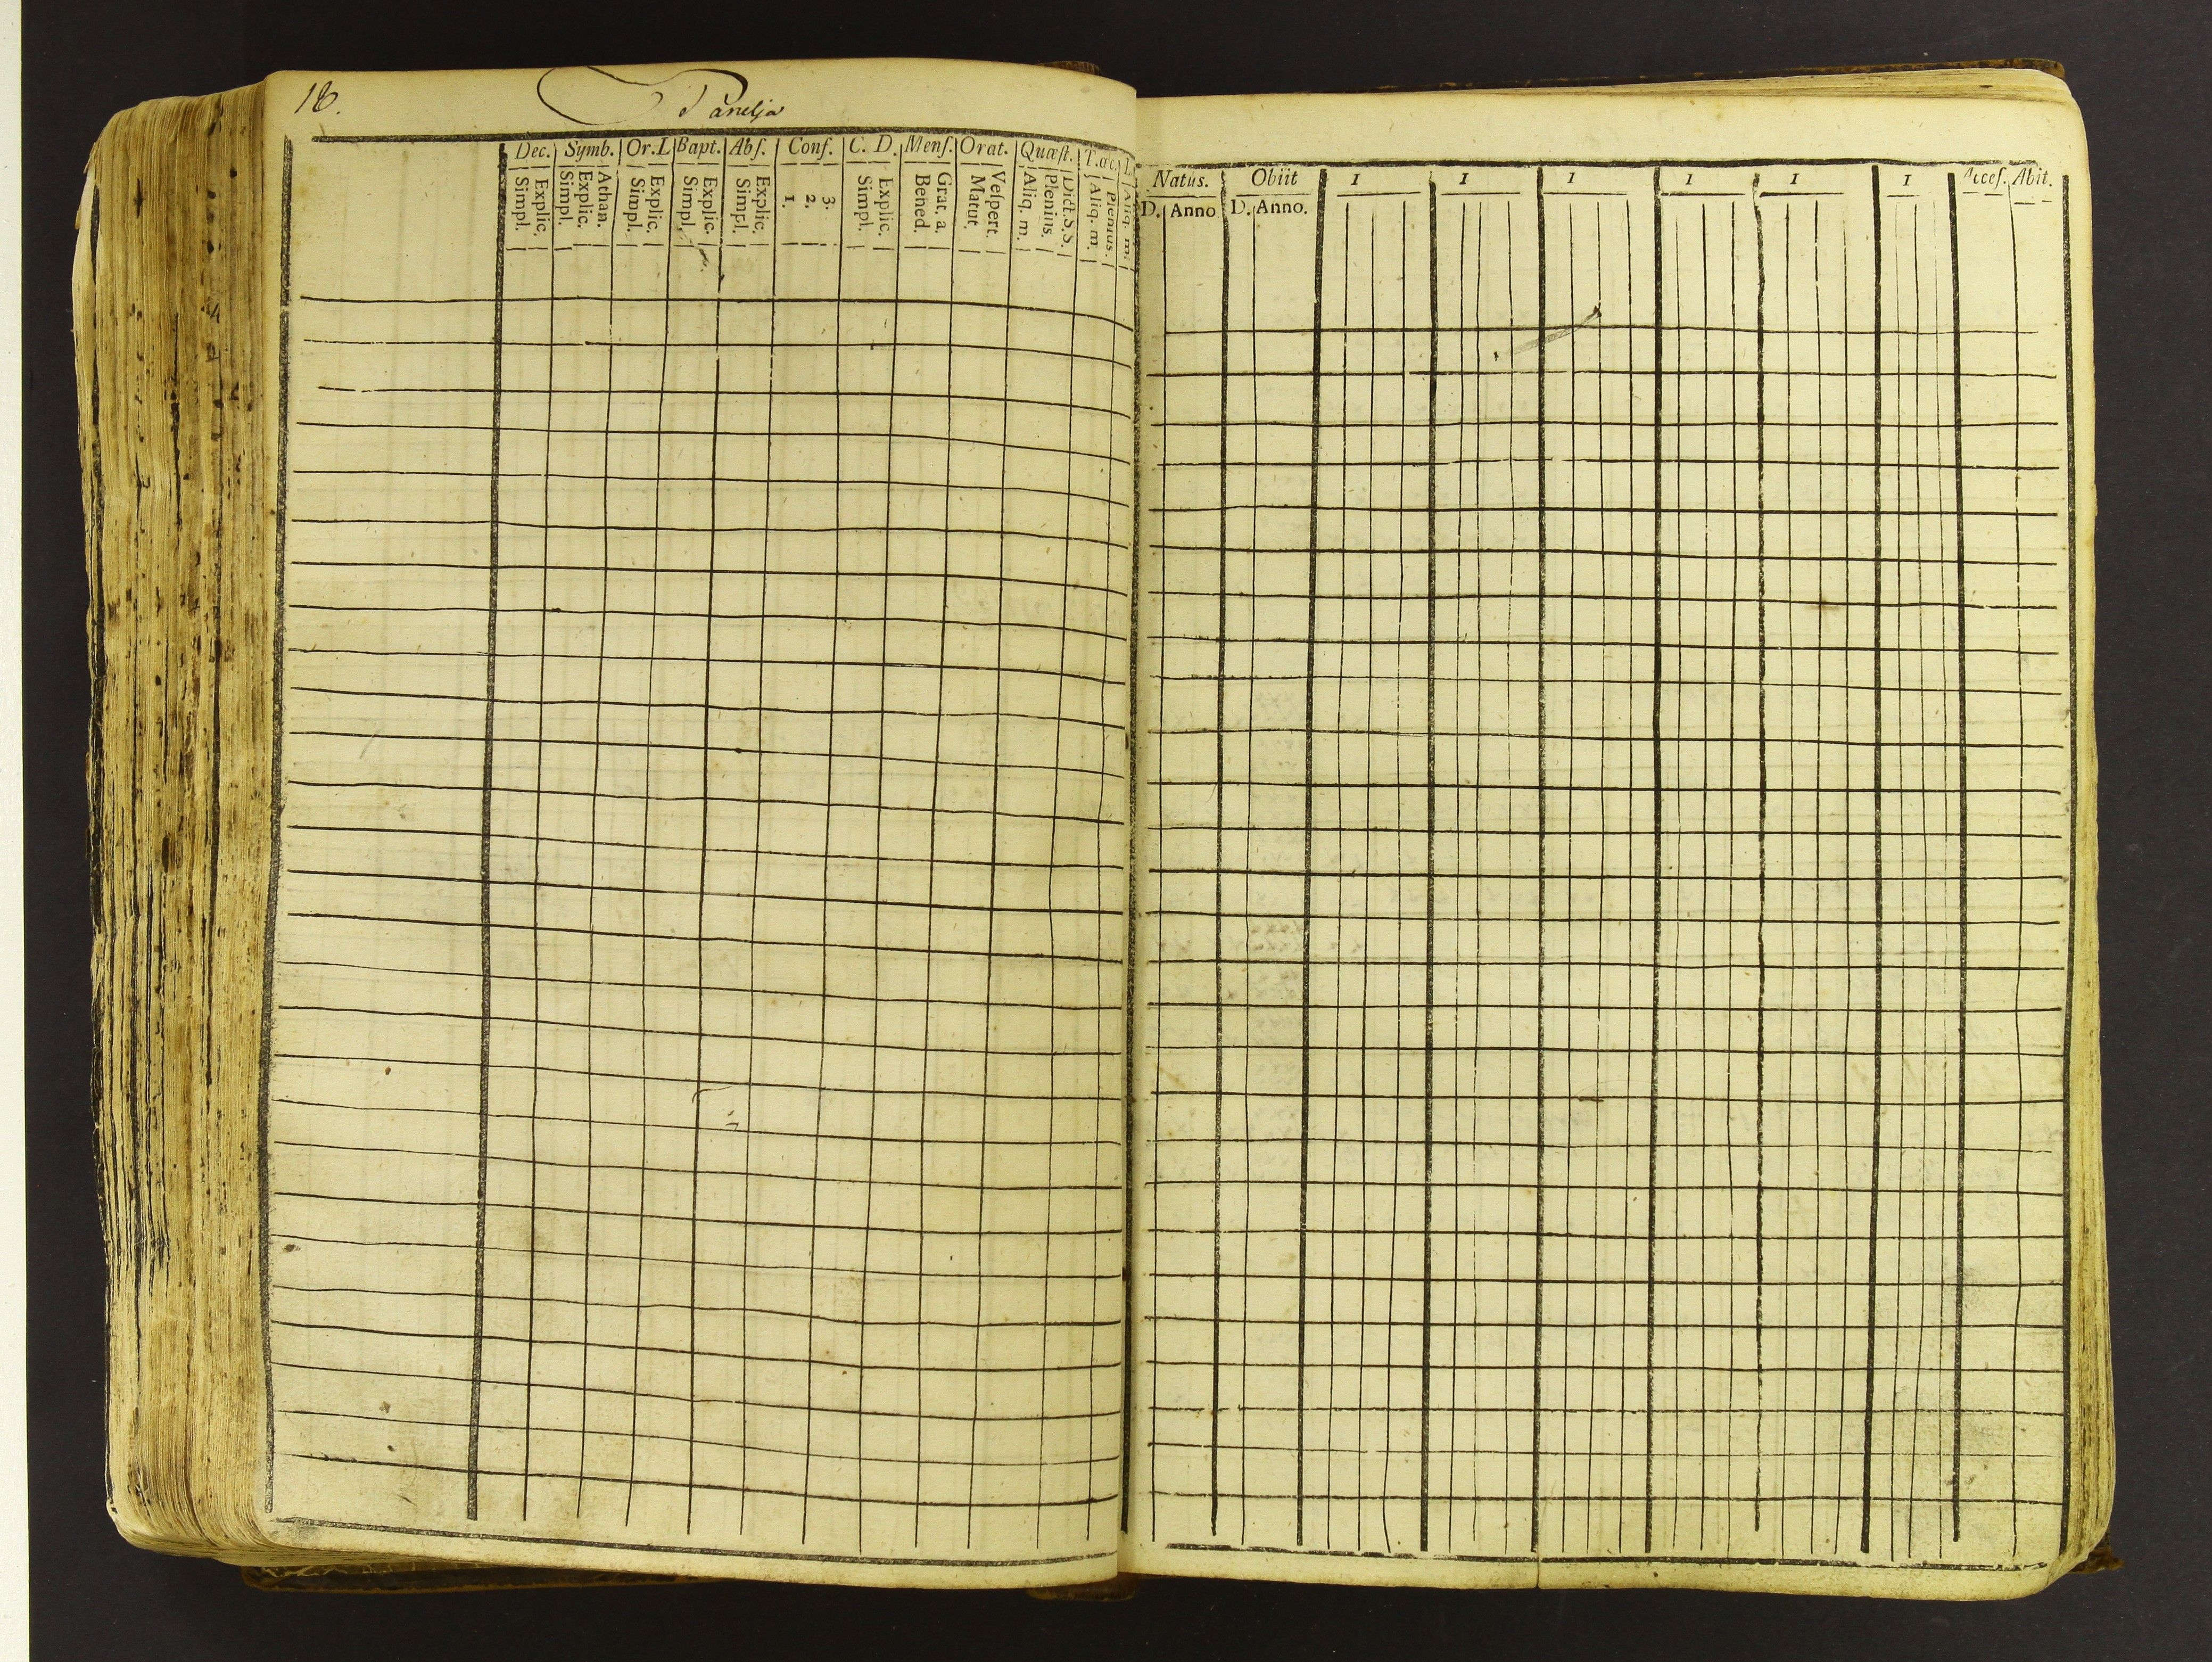 18.
Panelja
Dec. Symb. Or. L Bapt. Abſ. Conf. C. D. Menſ. Orat. Quæſt. T. œc. L
Explic. Simpl. Athan. Explic. Simpl. Explic. Simpl. Explic. Simpl. Explic. Simpl. 3. 2. 1. Explic. Simpl. Grat. a. Bened. Veſpert. Matut. Dict. S. S. Plenius. Aliq. m. Plenius. Aliq. m. Aliq. m.
Natus. Obiit 1 1 1 1 1 1 Acceſ. Abit.
D. Anno D. Anno.